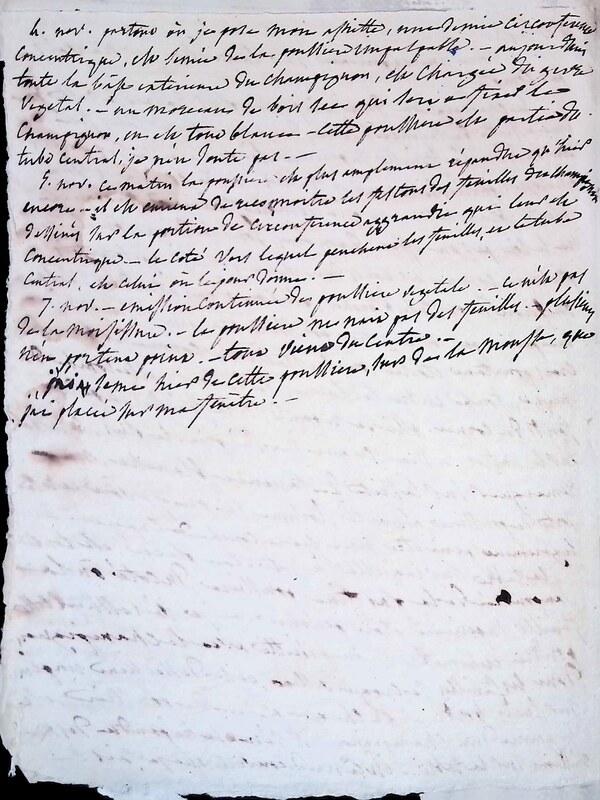 4. nov. partout où je pose mon assiette, une demie circonference
concentrique, est semée de la poussiere impalpable. - aujourdhui
toute la base exterieure du champignon, est chargée du givre
vegetal. - un morceau de bois sec qui sert a fixer le
champignon, en est tout blanc - cette poussiere est partie du
tube central, je n'en doute pas. -
5. nov. ce matin la poussiere est plus amplement répandue qu'hier
encore. - il est curieux de reconnoitre les festons des feuilles du champignon
dessinés sur la portion de circonference aggrandie qui leur est
concentrique. - le coté vers lequel penchent les feuilles, et le tube
central, est celui où le jour donne. -
7. nov. - emission continuee des poussiere vegetale. - ce n'est pas
de la moisissure. - la poussiere ne nait pas des feuilles. - plusieurs
n'en portent point. - tout vient du centre. -
j'ai semé hier de cette poussiere, sur de la mousse, que
j'ai placée sur ma fenêtre. -